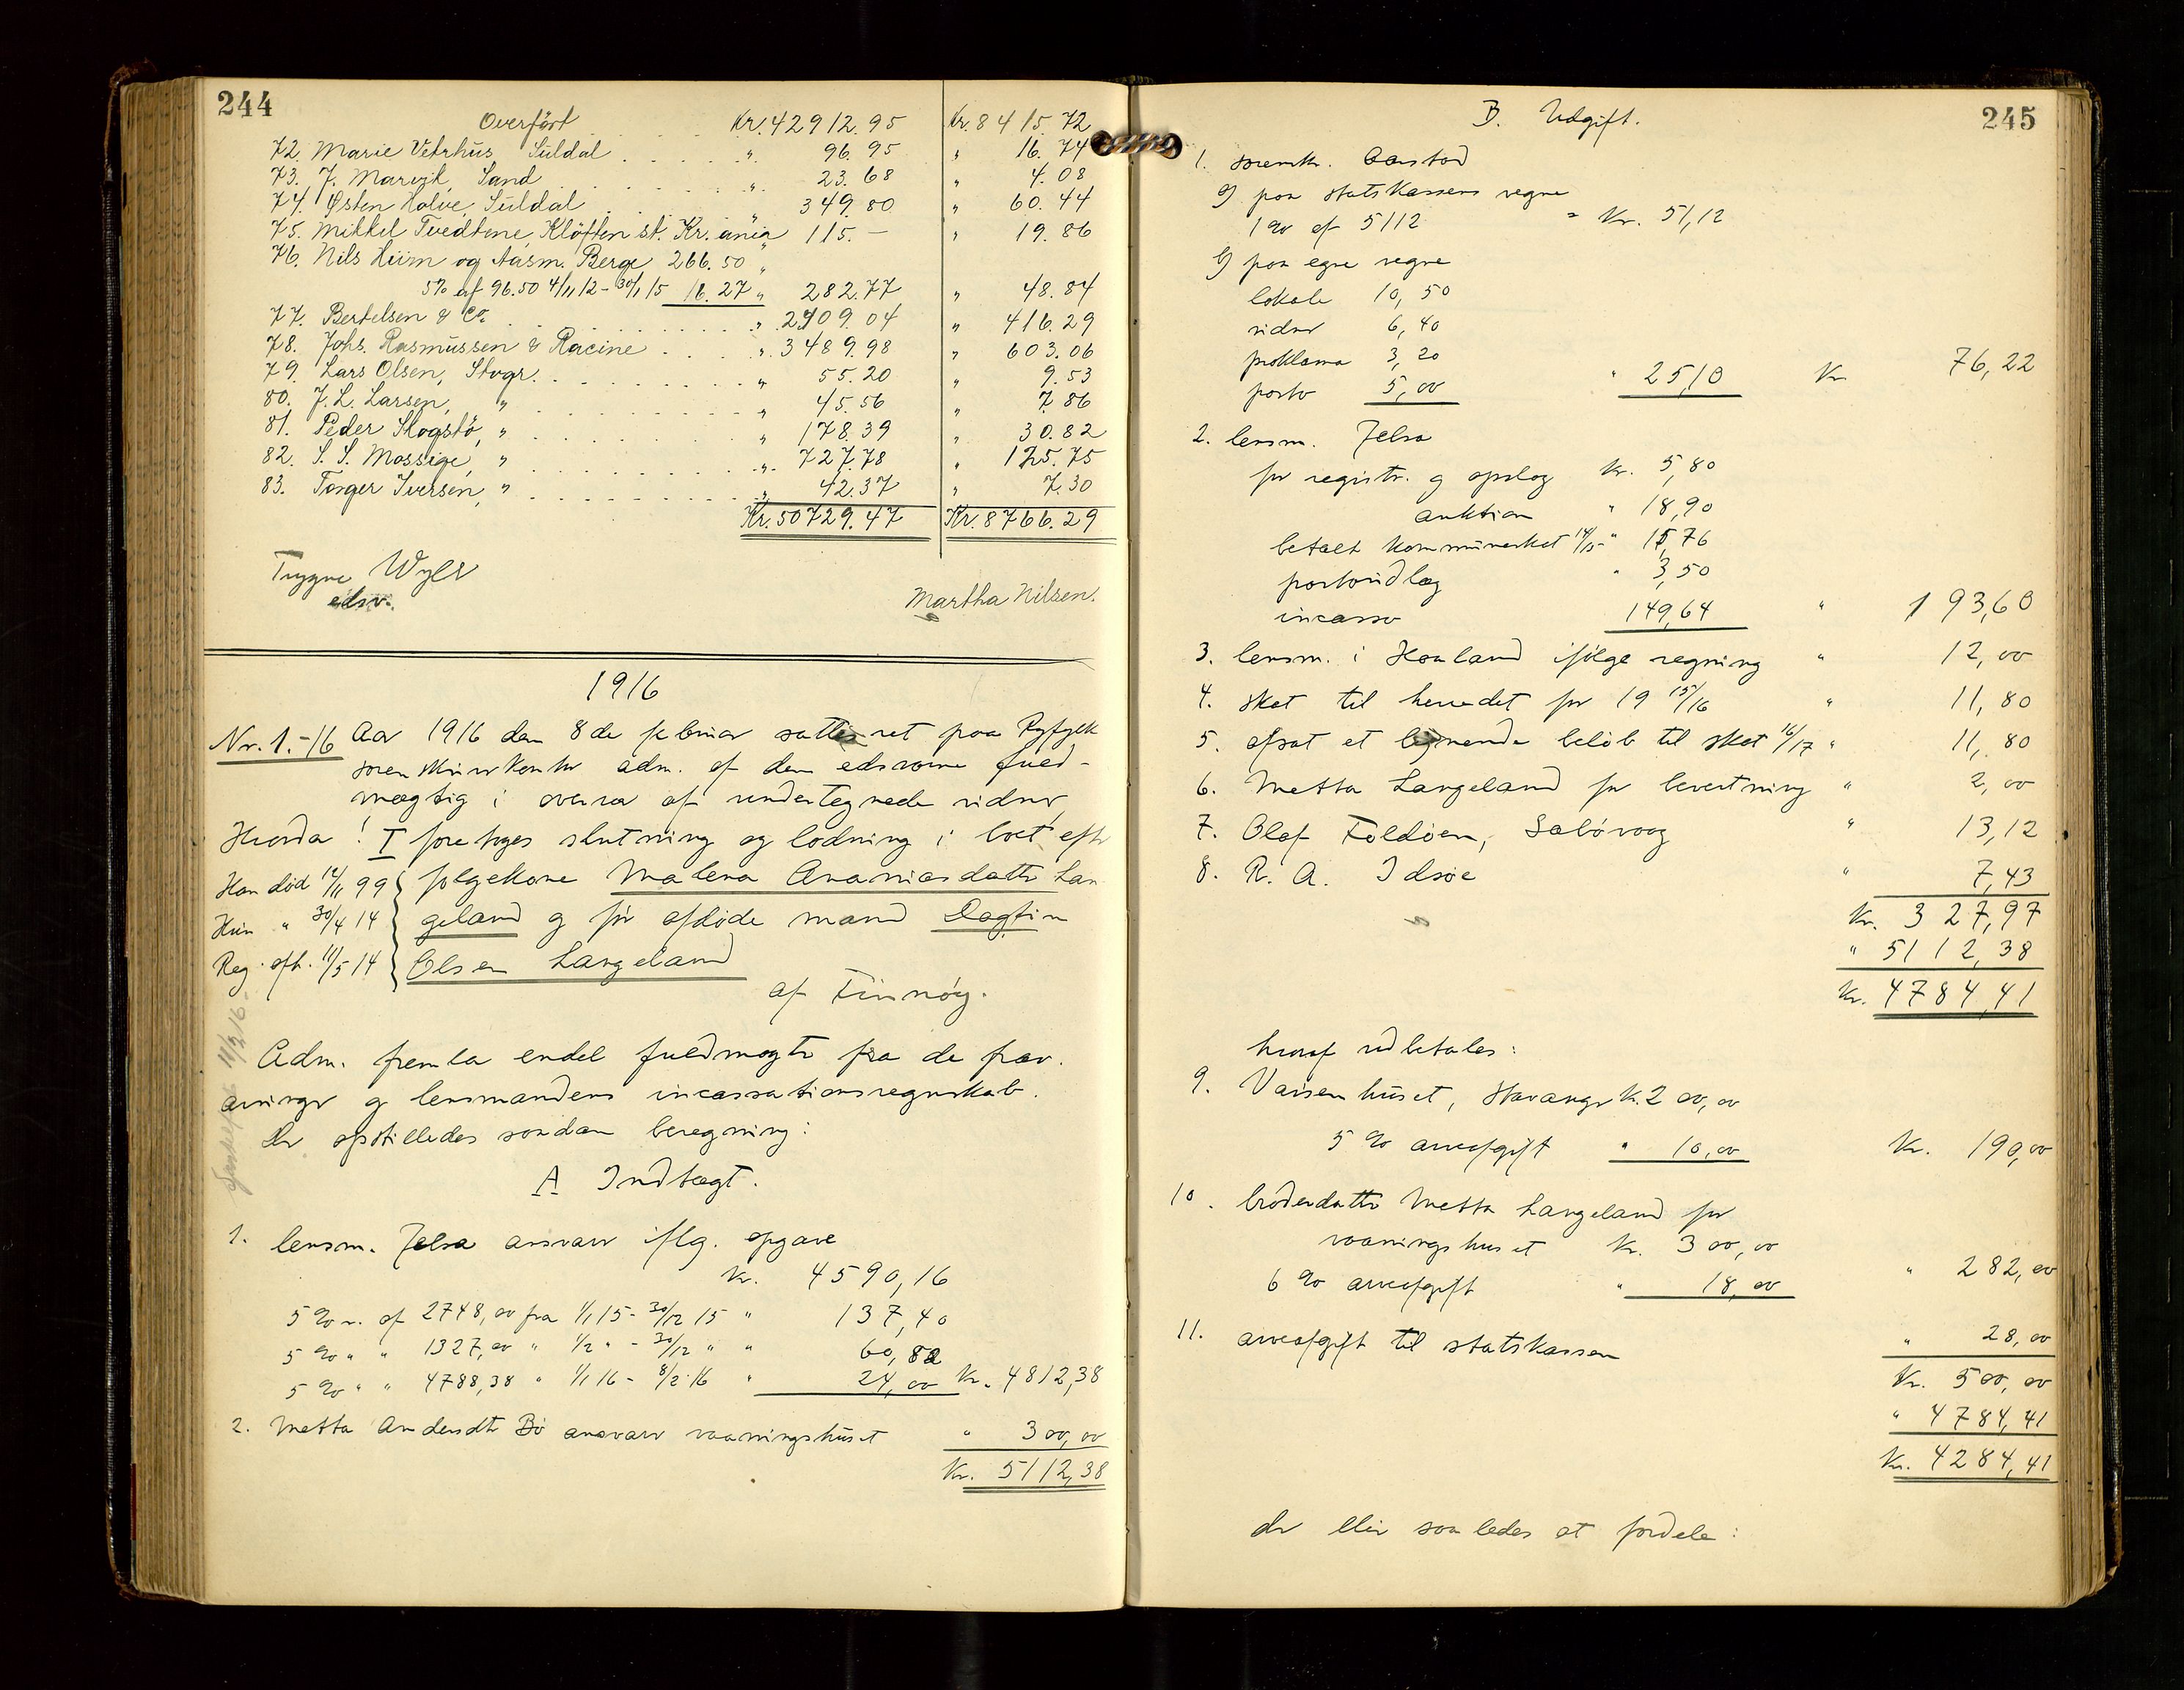 244
Overført Kr. 42912.95 Kr. 8415.72
72. Marie Vetrhus, Suldal " 96.95 " 16.74
73. J. Marvik, Sand " 23.68 " 4.08
74. Østen Holve, Suldal " 349.80 " 60.44
75. Mikkel Tvedtene, Kløften st. Kr.ania 115.- " 19.86
76. Nils Hiim og Aasm. Berge 266.50
5% af 96.50 4/11 12 - 30/1 15 16.27 " 282.77 " 48.84
77. Bertelsen & Co. " 2409.04 " 416.29
78. Johs. Rasmussen & Racine " 3489.98 " 603.06
79. Lars Olsen, Stvgr. " 55.20 " 9.53
80. J. L. Larsen, " " 45.56 " 7.86
81. Peder Skogstø, " " 178.39 " 30.82
82. S. S. Mossige, " " 727.78 " 125.75
83. Torger Iversen, " " 42.37 " 7.30
Kr. 50729.47 Kr. 8766.29
Trygve Wyller
edsv.
Martha Nilsen.
1916
Nr. 1.-16 Aar 1916 den 8de februar sattes ret paa Ryfylke
sorenskriverkontor adm. af den edsvorne fuld-
mægtig i overvær af undertegnede vidner,
Hvorda! I foretoges slutning og lodning i boet efter
Han død 14/11 99 folgekone Malena Ananiasdatter Lan
Hun " 30/4 14 geland og før afdøde mand Dagfin
Reg. oft. 11/5 14 Olsen Langeland
af Finnøy.
Adm. fremla endel fuldmagter fra de frav.
arvinger og lensmandens incassationsregnskab.
Der opstilledes saadan beregning:
A Indtægt.
1. lensm. Jelsa ansvarer iflg. opgave
Kr. 4590,16
5 % r. af 2748,00 fra 1/1 15 - 30/12 15 " 137,40
5 % " " 1327,00 " 1/2 " - 30/12 " " 60,82
5 % " " 4788,38 " 1/1 16 - 8/2 16 " 24,00 Kr. 4812,38
2. Metta Andersdtr Bø ansvarer vaaningshuset " 300,00
Kr. 5112,38
245
B. Udgift.
1. sorenskr. Aarstad
a) paa statskassens regne
1 % af 5112 = Kr. 51,12
b) paa egne regne
lokale 10,50
vidner 6,40
proklama 3,20
porto 5,00 " 25,10 Kr 76,22
2. lensm. Jelsa
for registr. og opslag Kr. 5,80
auktion " 18,90
betalt kommuneskat 14/15 " 15,76
portoudlæg " 3,50
incasso 149,64 " 193,60
3. lensm. i Hauland ifølge regning " 12,00
4. skat til herredet for 19 15/16 " 11,80
5. afsat et lignende beløb til skat 16/17 " 11,80
6. Metta Langeland for bevertning " 2,00
7. Olaf Foldøen, Salvåvåg " 13,12
8. R. A. Idsøe " 7,43
Kr. 327,97
" 5112,38
Kr. 4784,41
heraf udbetales:
9. Vaisenhuset, Stavanger k. 200,00
5 % arveafgift " 10,00 Kr. 190,00
10. broderdatter Metta Langeland for
vaaningshuset Kr. 300,00
6 % arveafgift " 18,00 " 282,00
11. arveafgift til statskassen " 28,00
Kr. 500,00
" 4784,41
Kr. 4284,41
der blir saaledes at fordele: